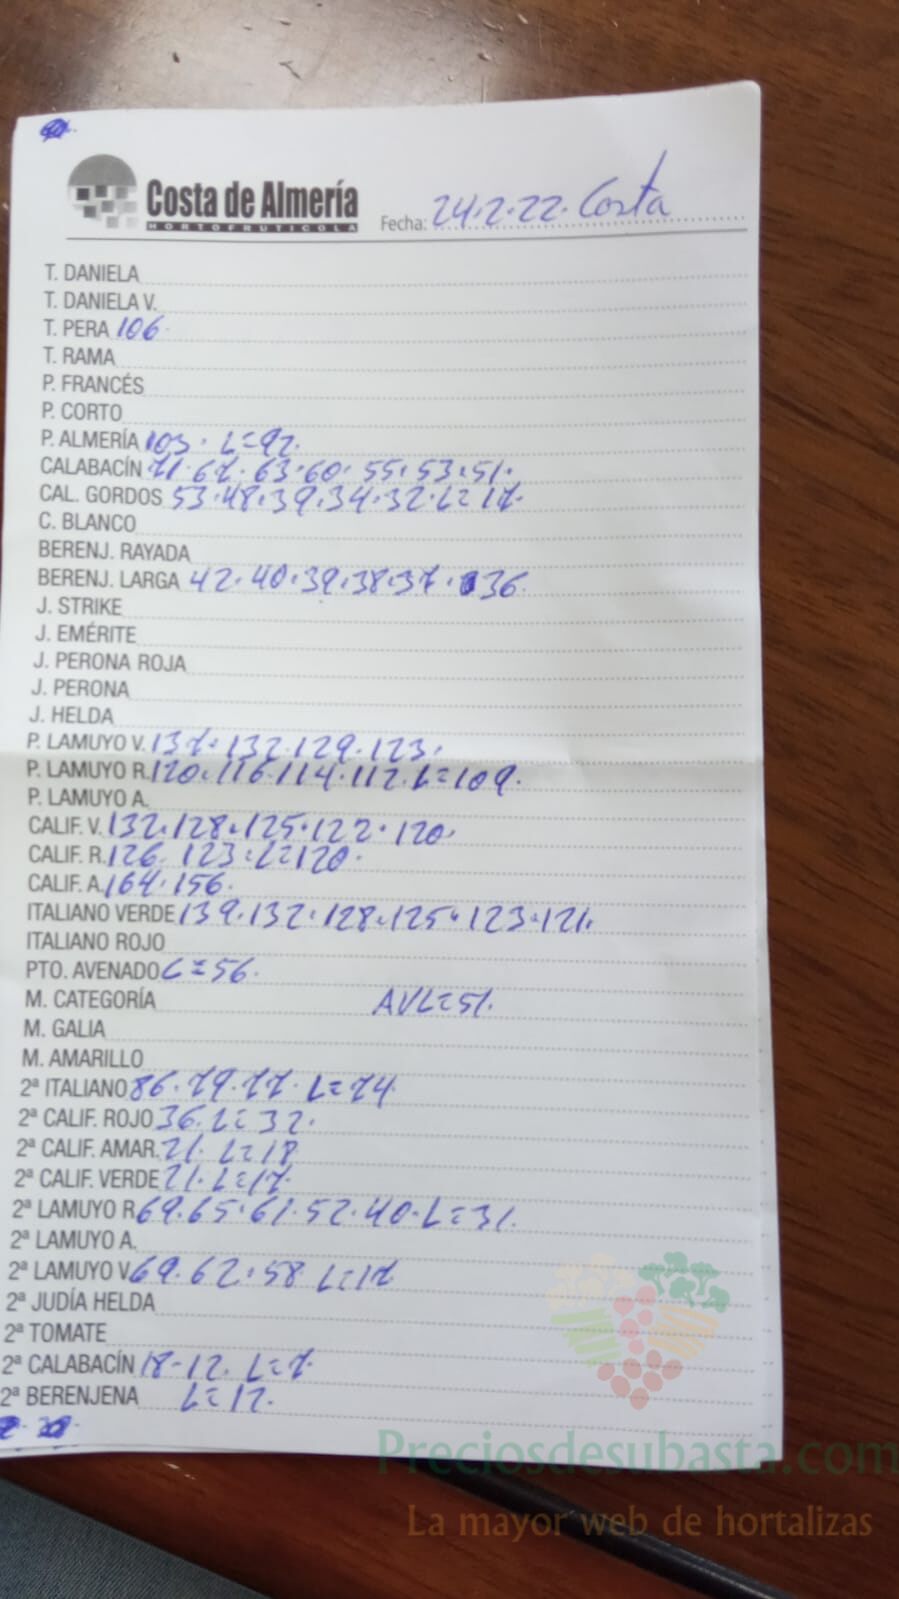 Costa de Almería
HORTOFRUTICOLA
Fecha: 24.2.22. Costa
T. DANIELA
T. DANIELA V.
T. PERA 106.
T. RAMA
P. FRANCÉS
P. CORTO
P. ALMERÍA 103. L=92.
CALABACÍN 71.67.63.60.55.53.51.
CAL. GORDOS 53.48.39.34.32.L=17.
C. BLANCO
BERENJ. RAYADA
BERENJ. LARGA 42.40.39.38.37.36.
J. STRIKE
J. EMÉRITE
J. PERONA ROJA
J. PERONA
J. HELDA
P. LAMUYO V. 137.132.129.123.
P. LAMUYO R. 120.116.114.112.L=109.
P. LAMUYO A.
CALIF. V. 132.128.125.122.120.
CALIF. R. 126.123.L=120.
CALIF. A. 164.156.
ITALIANO VERDE 139.132.128.125.123.121.
ITALIANO ROJO
PTO. AVENADO L=56.
M. CATEGORÍA AVL=51.
M. GALIA
M. AMARILLO
2ª ITALIANO 86.79.77.L=74
2ª CALIF. ROJO 36.L=32.
2ª CALIF. AMAR. 21.L=18
2ª CALIF. VERDE 21.L=17.
2ª LAMUYO R. 69.65.61.52.40.L=31.
2ª LAMUYO A.
2ª LAMUYO V. 69.62.58 L=17
2ª JUDÍA HELDA
2ª TOMATE
2ª CALABACÍN 18-12. L=7.
2ª BERENJENA L=12.
Preciosdesubasta.com
La mayor web de hortalizas